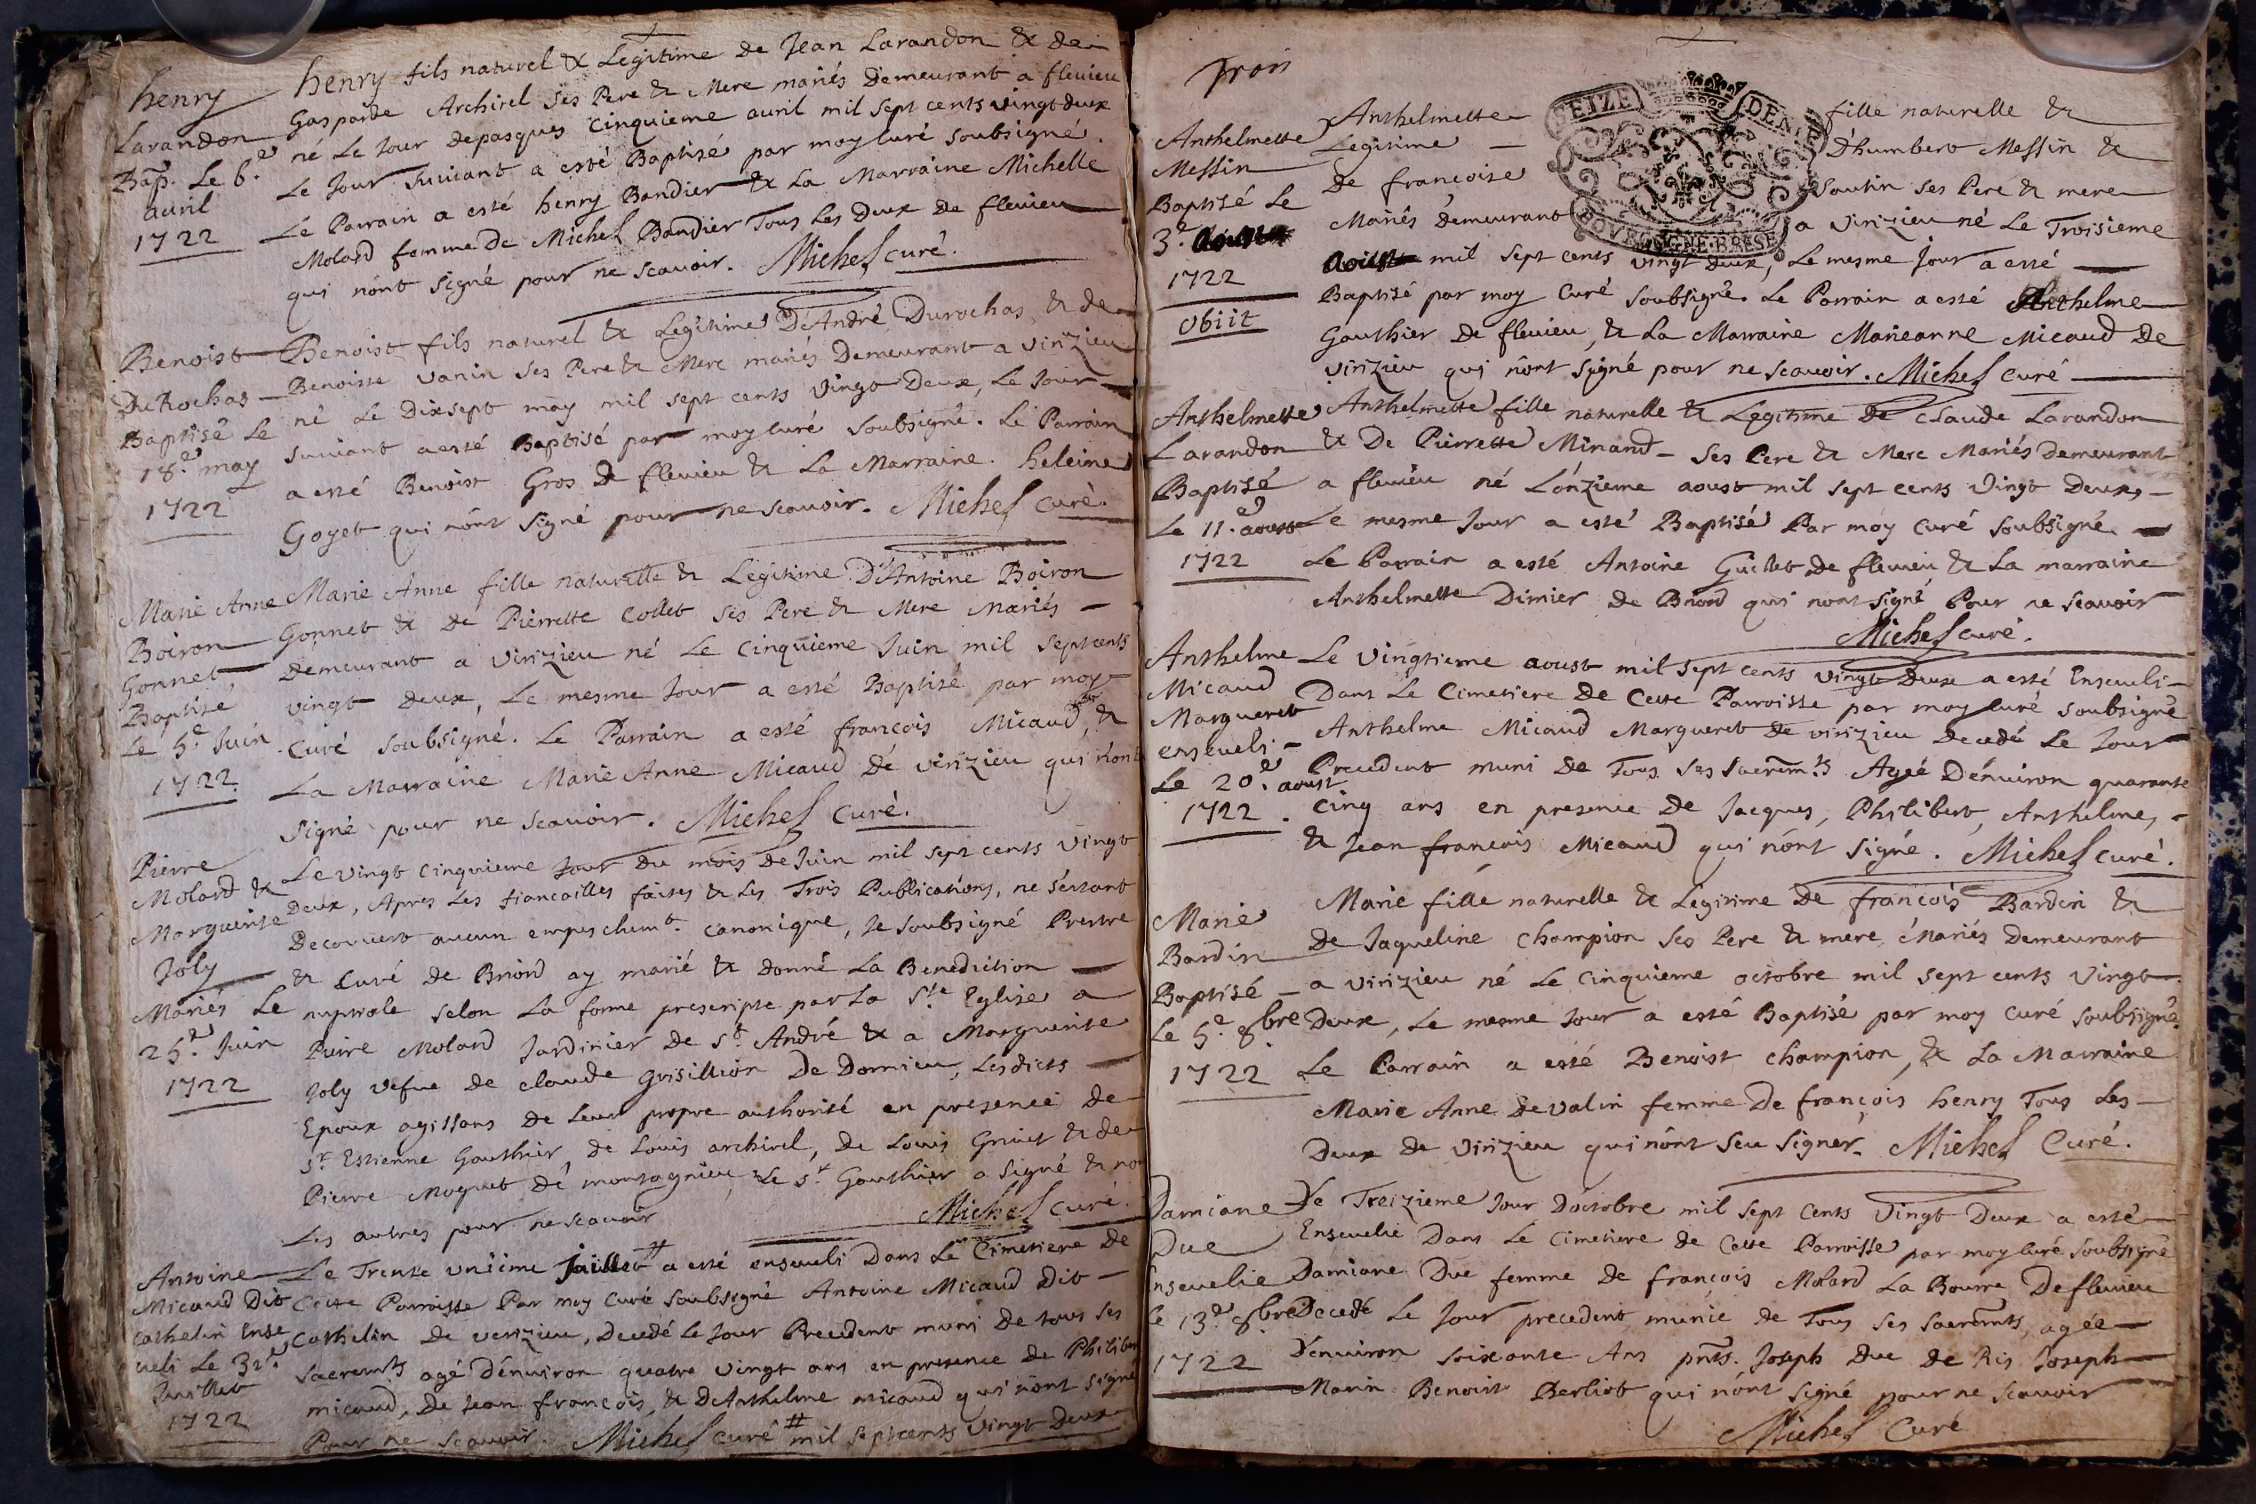 henry
Larandon
Bap. Le 6.e
auril
1722
henry fils naturel & Legitime de Jean Larandon & de
Gasparde Archirel ses Pere & Mere mariés demeurant a fleuieu
né Le Jour de pasques cinquieme auril mil sept cents vingt deux
Le Jour suiuant a esté Baptisé par moy curé soubsigné.
Le Parrain a esté henry Bandier & La Marraine Michelle
Molard femme de Michel Bandier Tous Les Deux de fleuieu
qui n'ont signé pour ne scauoir. Michel curé.
Benoist
Du Rochas
Baptisé Le
18.e may
1722
Benoist fils naturel & Legitime D'André Durochas & de
Benoiste Vanin ses Pere & Mere mariés Demeurant a virizieu
né Le Dixsept may mil sept cents vingt Deux, Le Jour
suiuant a esté Baptisé par moy curé soubsigné. Le Parrain
a esté Benoist Gros de fleuieu & La Marraine heleine
Goyet qui n'ont signé pour ne scauoir. Michel curé.
Marie Anne
Boiron
Gonnet
Baptisé
Le 5.e Juin
1722
Marie Anne fille naturelle & Legitime D'Antoine Boiron
Gonnet & de Pierrette Collet ses Pere & Mere Mariés
demeurant a virizieu né Le cinquieme Juin mil sept cents
vingt deux, Le mesme Jour a esté Baptisé par moy
curé soubsigné. Le Parrain a esté françois Micaud, &
La Marraine Marie Anne Micaud de virizieu qui n'ont
signé pour ne scauoir. Michel curé.
Pierre
Molard &
Marguerite
Joly
Mariés Le
25.e Juin
1722
Le vingt cinquieme Jour du mois de Juin mil sept cents vingt
Deux, Apres Les fiancailles faites & Les Trois Publications, ne s'estant
Decouuert aucun empeschemt. canonique, Je soubsigné Prestre
& Curé de Briord ay marié & donné La Benediction
nuptiale selon La forme prescripte par La Ste Eglise a
Pierre Molard Jardinier de St André & a Marguerite
Joly vefue de claude grisillion De Dornieu, Lesdicts
Epoux agissans de Leur propre authorité en presence de
sr Estienne Gauthier, de Louis archirel, de Louis & de
Pierre Moquet de montagnieu, Le sr Gauthier a signé & non
Les autres pour ne scauoir Michel curé.
Antoine
Micaud Dit
Cathelin Ense
ueli Le 31.e
Juillet
1722
Le Trente unième Juillet # a esté enseueli Dans Le Cimetiere de
Cette Parroisse Par moy Curé soubsigné Antoine Micaud Dit
Cathelin de verizieu, Decedé Le Jour Precedent muni de tous ses
sacremts agé D'enuiron quatre vingt ans en presence de Philibert
micaud, De Jean françois, & D'Anthelme micaud qui n'ont signé
Pour ne scauoir. Michel curé # mil sept cents vingt Deux
Trois
SEIZE DENIE
BOVRGOGNE·BRESSE
Anthelmette
Messin
Baptisé Le
3.e
1722
Obiit
Anthelmette fille naturelle &
Legitime D'humbert Messin &
De françoise Soutin ses Pere & mere
Mariés demeurant a virizieu né Le Troisieme
aoust mil sept cents vingt deux, Le mesme Jour a esté
Baptisé par moy Curé soubsigné. Le Parrain a esté Anthelme
Gauthier de fleuieu, & La Marraine Marieanne Micaud De
virizieu qui n'ont signé pour ne scauoir. Michel Curé
Anthelmette
Larandon
Baptisé
Le 11.e aoust
1722
Anthelmette fille naturelle & Legitime De Claude Larandon
& De Pierrette Minand ses Pere & Mere Mariés Demeurant
a fleuieu né L'onzieme aoust mil sept cents Vingt Deux,
Le mesme Jour a esté Baptisé Par moy Curé soubsigné
Le Parrain a esté Antoine Guillet de fleuieu & La marraine
Anthelmette Dimier de Briord qui n'ont signé Pour ne scauoir
Michel curé.
Anthelme
Micaud
Margueret
enseueli
Le 20.e aoust
1722.
Le vingtieme aoust mil sept cents vingt Deux a esté Enseueli
Dans Le Cimetiere de Cette Parroisse par moy curé soubsigné
Anthelme Micaud Margueret de virizieu Decedé Le Jour
Precedent muni de Tous ses sacremts Agé D'enuiron quarante
Cinq ans en presence De Jacques, Philibert, Anthelme,
& Jean françois Micaud qui n'ont signé. Michel curé.
Marie
Bardin
Baptisé
Le 5.e 8bre
1722
Marie fille naturelle & Legitime De françois Bardin &
de Jaqueline Champion ses Pere & mere Mariés Demeurant
a virizieu né Le cinquieme octobre mil sept cents Vingt
Deux, Le mesme Jour a esté Baptisé par moy Curé soubsigné.
Le Parrain a esté Benoist Champion, & La Marraine
Marie Anne Devalin femme De françois henry Tous Les
Deux de virizieu qui n'ont sceu signer. Michel Curé.
Damiane
Due
Enseuelie
le 13.e 8bre
1722
Le Treizieme Jour D'octobre mil sept Cents Vingt Deux a esté
Enseuelie Dans Le Cimetiere de Cette Parroisse par moy curé soubsigné
Damiane Due femme de françois Molard La Bourre De fleuieu
Decedé Le Jour precedent munie de Tous ses sacremts, agée
D'enuiron soixante Ans pnts. Joseph Due de Ris Joseph
Marin Benoist Berliot qui n'ont signé pour ne scauoir
Michel Curé